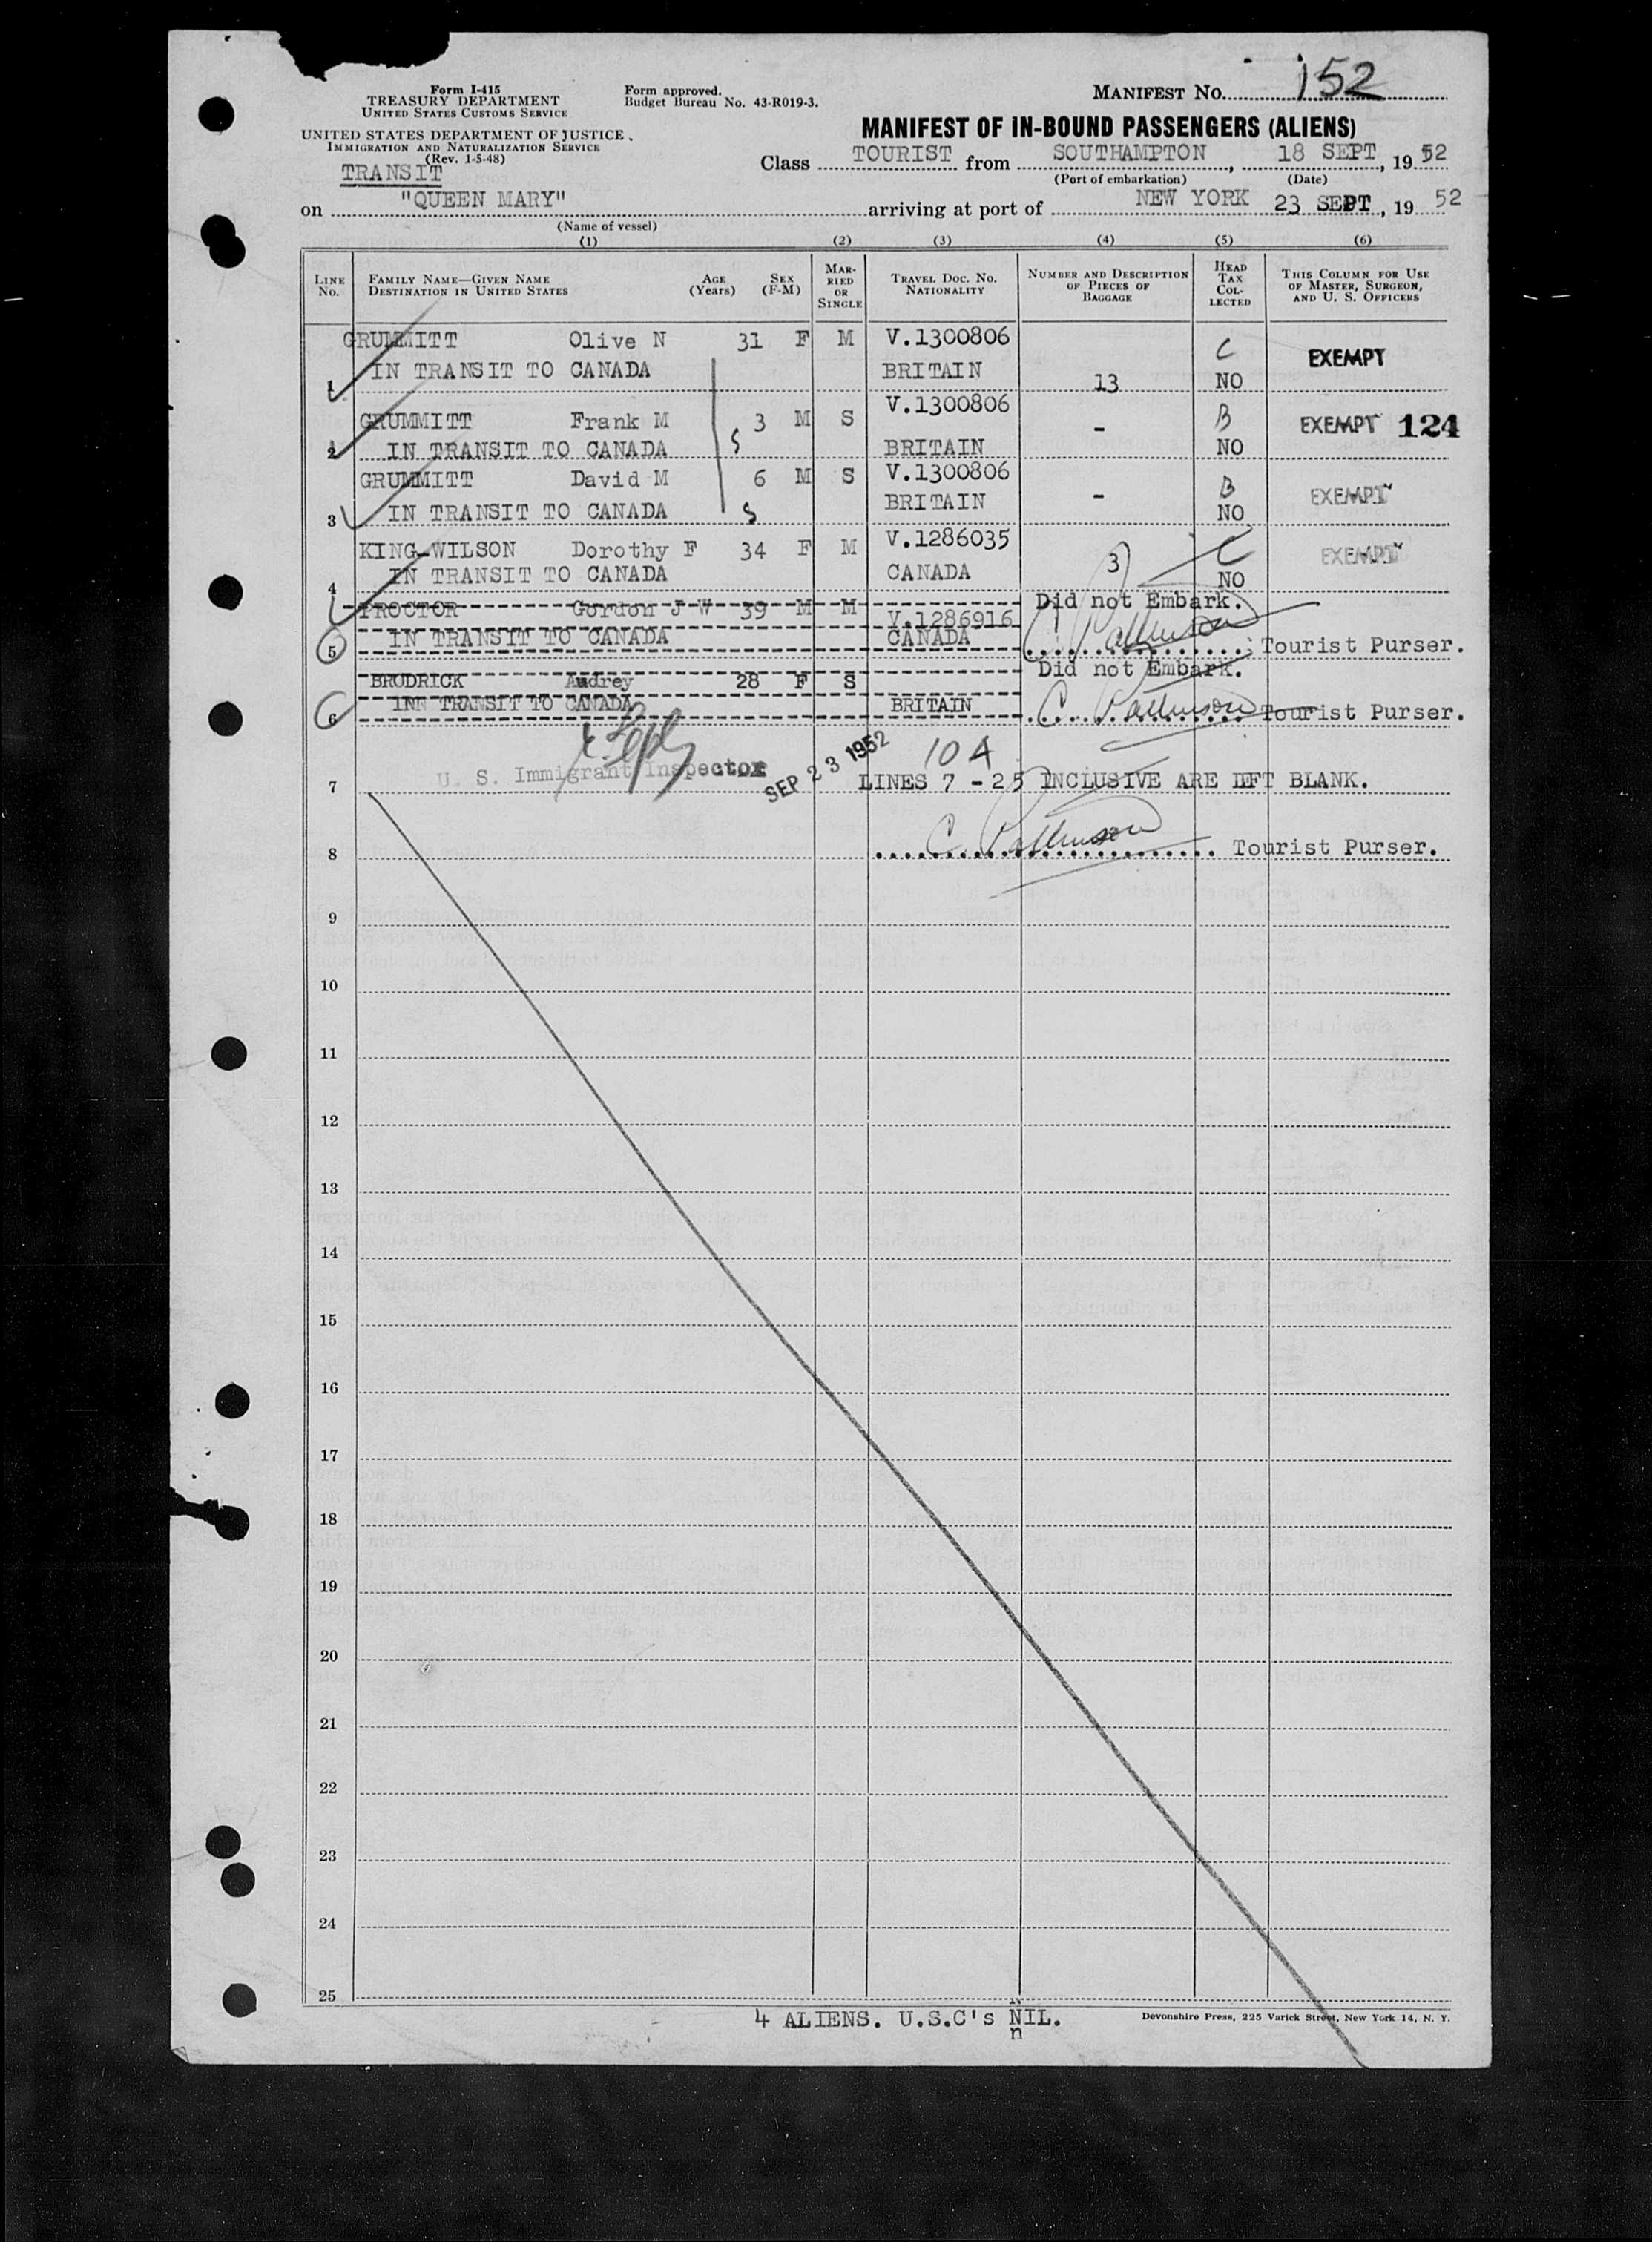 Form I-415
TREASURY DEPARTMENT
UNITED STATES CUSTOMS SERVICE
UNITED STATES DEPARTMENT OF JUSTICE
IMMIGRATION AND NATURALIZATION SERVICE
(Rev. 1-5-48)
TRANSIT
Form approved.
Budget Bureau No. 43-R019-3.
MANIFEST NO. 152
MANIFEST OF IN-BOUND PASSENGERS (ALIENS)
Class TOURIST from SOUTHAMPTON, 18 SEPT, 1952
(Port of embarkation) (Date)
on "QUEEN MARY" arriving at port of NEW YORK 23 SEPT, 1952
(Name of vessel)
(1) (2) (3) (4) (5) (6)
LINE NO. FAMILY NAME—GIVEN NAME DESTINATION IN UNITED STATES AGE (Years) SEX (F-M) MARRIED OR SINGLE TRAVEL DOC. NO. NATIONALITY NUMBER AND DESCRIPTION OF PIECES OF BAGGAGE HEAD TAX COLLECTED THIS COLUMN FOR USE OF MASTER, SURGEON, AND U. S. OFFICERS
GRUMMITT Olive N 31 F M V.1300806 C EXEMPT
1 IN TRANSIT TO CANADA BRITAIN 13 NO
GRUMMITT Frank M 3 M S V.1300806 - B EXEMPT 124
2 IN TRANSIT TO CANADA S BRITAIN NO
GRUMMITT David M 6 M S V.1300806 - B EXEMPT
3 IN TRANSIT TO CANADA S BRITAIN NO
KING-WILSON Dorothy F 34 F M V.1286035 3 C EXEMPT
4 IN TRANSIT TO CANADA CANADA NO
PROCTOR Gordon J W 39 M M V.1286916 Did not Embark.
5 IN TRANSIT TO CANADA CANADA C. Pattinson Tourist Purser.
BRODRICK Audrey 28 F S Did not Embark.
6 INN TRANSIT TO CANADA BRITAIN C. Pattinson Tourist Purser.
U. S. Immigrant Inspector SEP 23 1952 10 A
7 LINES 7 - 25 INCLUSIVE ARE LEFT BLANK.
8 C. Pattinson Tourist Purser.
9
10
11
12
13
14
15
16
17
18
19
20
21
22
23
24
25
4 ALIENS. U.S.C's NIL.
n
Devonshire Press, 225 Varick Street, New York 14, N. Y.